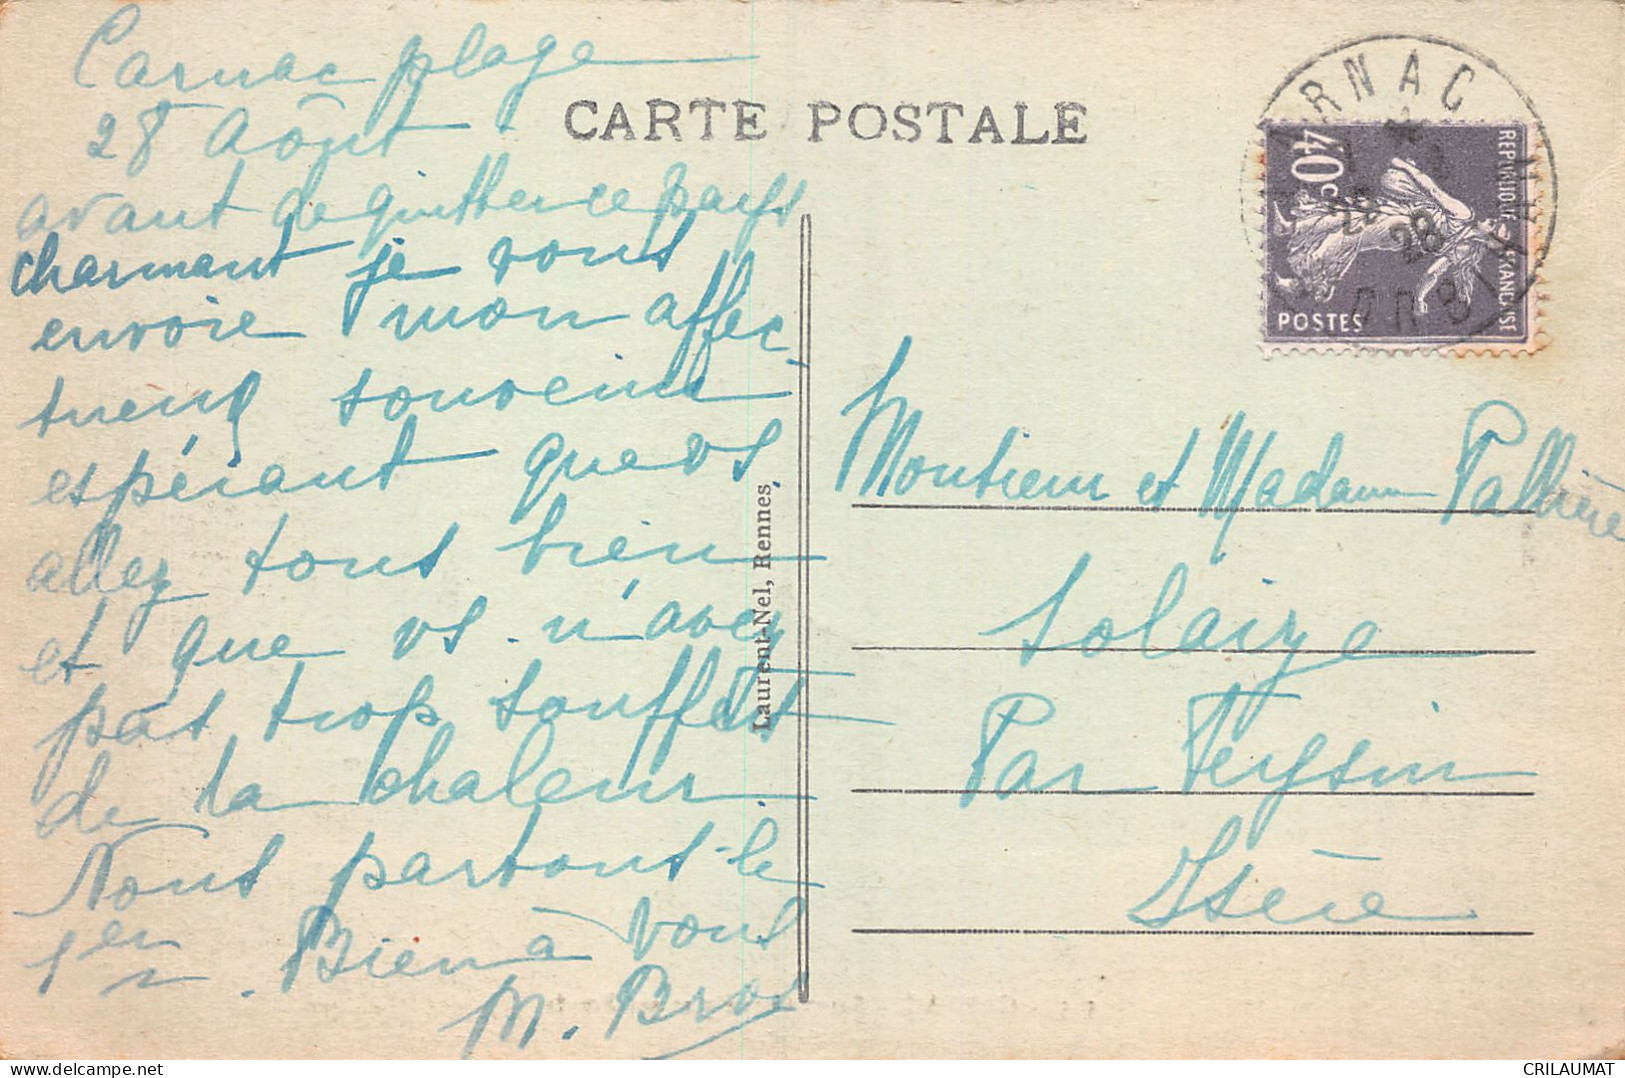 Carnac plage
28 Août
avant de quitter ce pays
charmant je vous
envoie mon affec
tueux souvenir
espérant que vs
allez tous bien
et que vs n'avez
pas trop souffert
de la chaleur.
Nous partons le
1er
Bien à vous
M. Bros
CARTE POSTALE
Laurent-Nel, Rennes
CARNAC
28
28
MORBIHAN
40c
REPUBLIQUE FRANCAISE
POSTES
Monsieur et Madame Pallière
Solaize
Par Feysin
Isère
CRILAUMAT